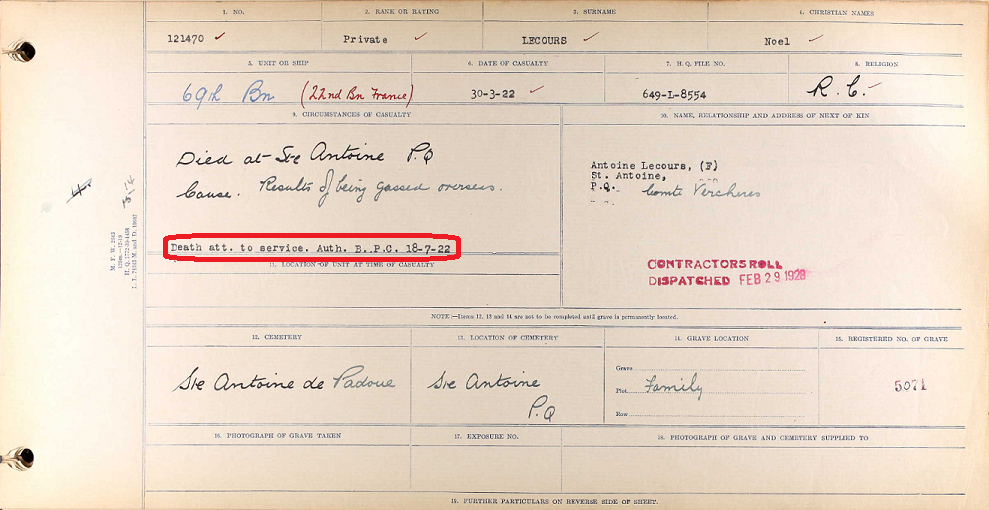 1. NO.
2. RANK OR RATING
3. SURNAME
4. CHRISTIAN NAMES
121470
Private
LECOURS
Noel
5. UNIT OR SHIP
6. DATE OF CASUALTY
7. H.Q. FILE NO.
8. RELIGION
69th Bn (22nd Bn France)
30-3-22
649-L-8554
R.C.
9. CIRCUMSTANCES OF CASUALTY
10. NAME, RELATIONSHIP AND ADDRESS OF NEXT OF KIN
Died at Ste Antoine P.Q
Cause. Results of being gassed overseas.
Death att. to service. Auth. B..P.C. 18-7-22
Antoine Lecours, (F)
St. Antoine,
P.Q. Comté Vercheres
11. LOCATION OF UNIT AT TIME OF CASUALTY
CONTRACTORS ROLL
DISPATCHED FEB 29 1928
NOTE:—Items 12, 13 and 14 are not to be completed until grave is permanently located.
12. CEMETERY
13. LOCATION OF CEMETERY
14. GRAVE LOCATION
15. REGISTERED NO. OF GRAVE
Ste Antoine de Padoue
Ste Antoine
P.Q
Grave
Plot Family
Row
5071
16. PHOTOGRAPH OF GRAVE TAKEN
17. EXPOSURE NO.
18. PHOTOGRAPH OF GRAVE AND CEMETERY SUPPLIED TO
19. FURTHER PARTICULARS ON REVERSE SIDE OF SHEET.